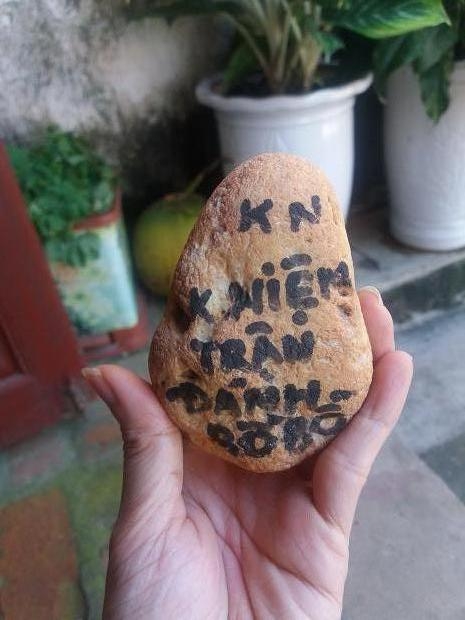 K N
K NIỆM
TRẬN
ĐÁNH
ĐỒ BÔ